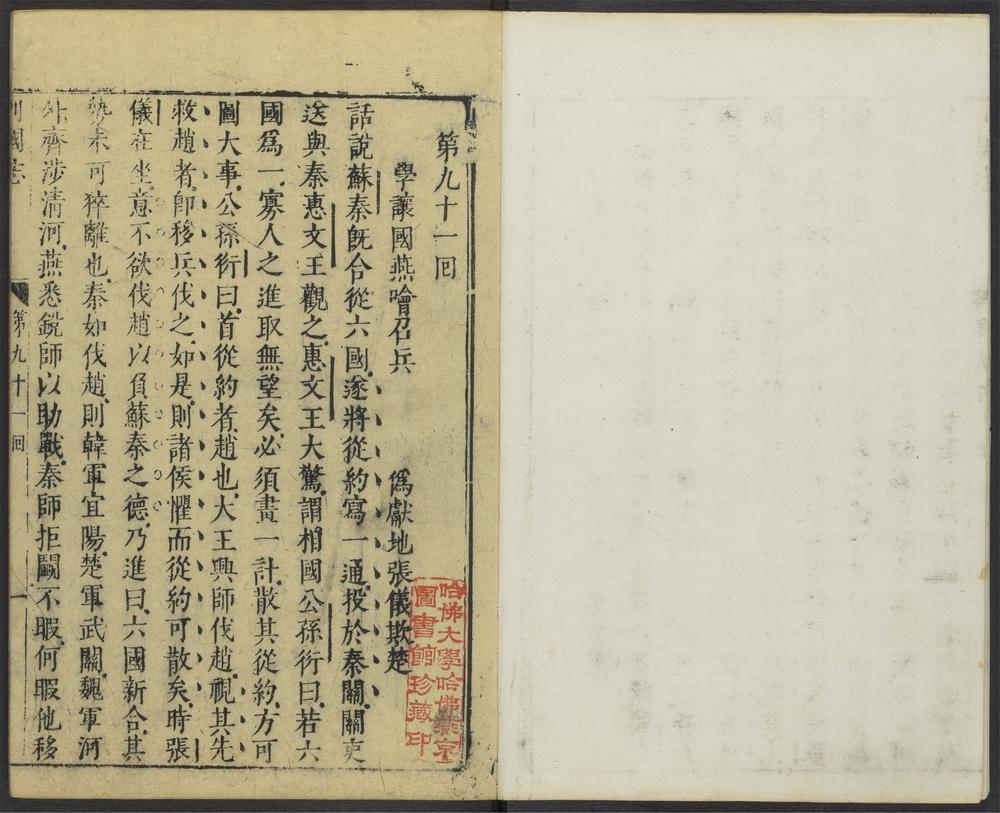 第九十一回
學讓國燕噲召兵　僞獻地張儀欺楚
話說蘇秦既合從六國遂將從約寫一通投於秦關關吏
送與秦惠文王觀之惠文王大驚謂相國公孫衍曰若六
國爲一寡人之進取無望矣必須畫一計散其從約方可
圖大事公孫衍曰首從約者趙也大王興師伐趙視其先
救趙者卽移兵伐之如是則諸侯懼而從約可散矣時張
儀在坐意不欲伐趙以負蘇秦之德乃進曰六國新合其
勢未可猝離也秦如伐趙則韓軍宜陽楚軍武關魏軍河
外齊涉清河燕悉銳師以助戰秦師拒鬭不暇何暇他移
列國志　第九十一回　一
哈佛大學哈佛燕京
圖書館珍藏印